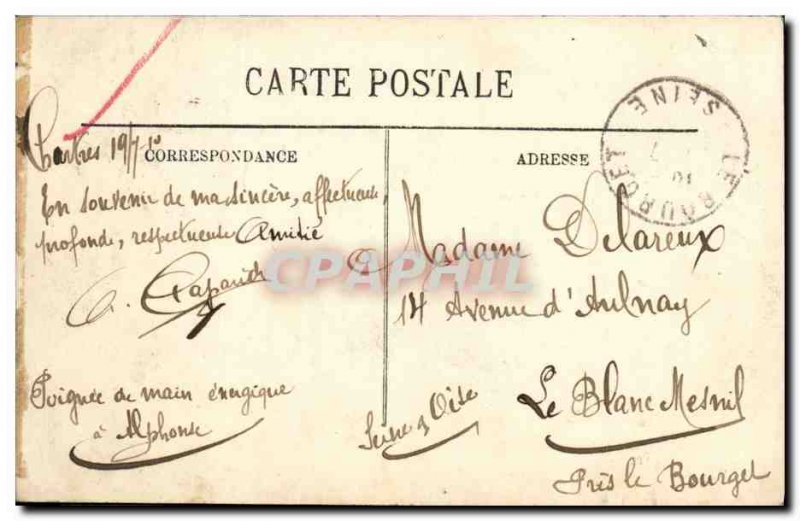 CARTE POSTALE
CORRESPONDANCE
ADRESSE
LE BOURGET
SEINE
19/7
En souvenir de ma sincère, affectueuse,
profonde, respectueuse Amitié
Poignée de main énergique
à Alphonse
Madame Delareux
14 Avenue d'Aulnay
Le Blanc Mesnil
Seine & Oise
Près le Bourget
CPAPHIL